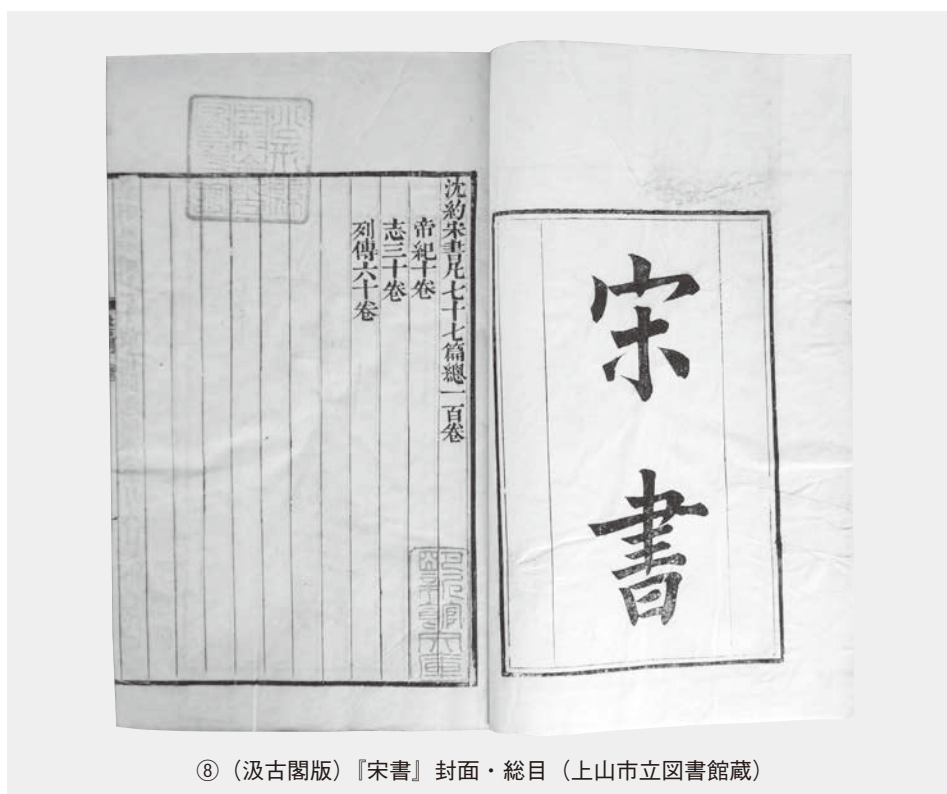 宋書
沈約宋書凡七十七篇總一百卷
帝紀十卷
志三十卷
列傳六十卷
⑧（汲古閣版）『宋書』封面・総目（上山市立図書館蔵）